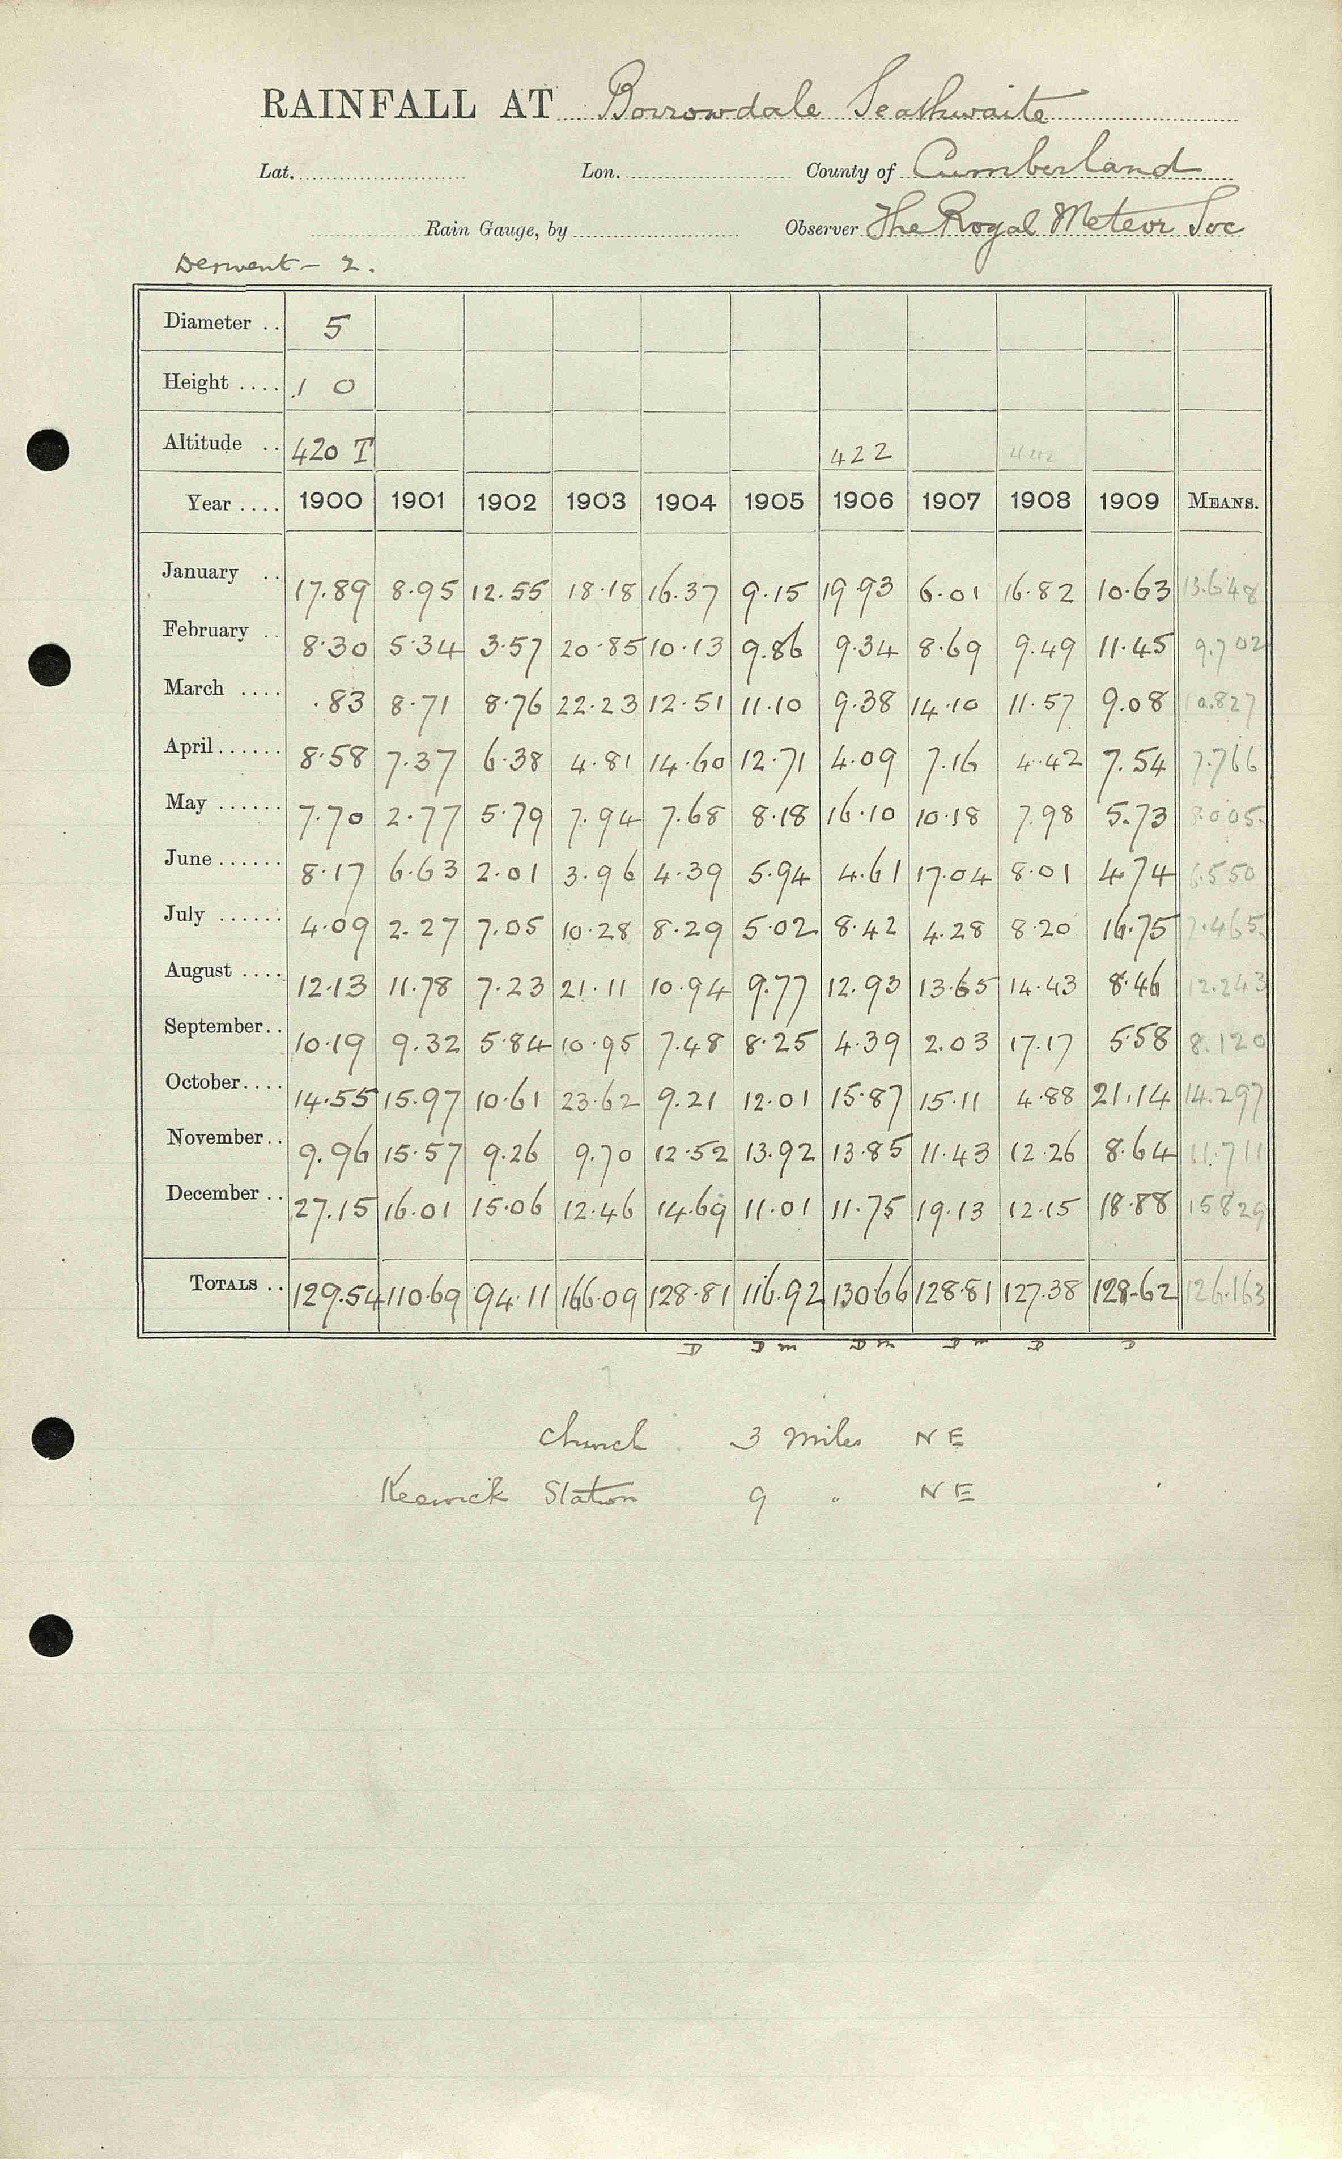 RAINFALL AT Borrowdale Seathwaite
Lat. Lon. County of Cumberland
Rain Gauge, by Observer The Royal Meteor Soc
Derwent - 2.
Diameter .. 5
Height .... 1 0
Altitude .. 420 T 422 442
Year .... 1900 1901 1902 1903 1904 1905 1906 1907 1908 1909 MEANS.
January .. 17.89 8.95 12.55 18.18 16.37 9.15 19 93 6.01 16.82 10.63 13.648
February .. 8.30 5.34 3.57 20.85 10.13 9.86 9.34 8.69 9.49 11.45 9.702
March .... .83 8.71 8.76 22.23 12.51 11.10 9.38 14.10 11.57 9.08 10.827
April...... 8.58 7.37 6.38 4.81 14.60 12.71 4.09 7.16 4.42 7.54 7.766
May ...... 7.70 2.77 5.79 7.94 7.68 8.18 16.10 10.18 7.98 5.73 8.005
June ...... 8.17 6.63 2.01 3.96 4.39 5.94 4.61 17.04 8.01 4.74 6.550
July ...... 4.09 2.27 7.05 10.28 8.29 5.02 8.42 4.28 8.20 16.75 7.465
August .... 12.13 11.78 7.23 21.11 10.94 9.77 12.93 13.65 14.43 8.46 12.243
September.. 10.19 9.32 5.84 10.95 7.48 8.25 4.39 2.03 17.17 5.58 8.120
October.... 14.55 15.97 10.61 23.62 9.21 12.01 15.87 15.11 4.88 21.14 14.297
November.. 9.96 15.57 9.26 9.70 12.52 13.92 13.85 11.43 12.26 8.64 11.711
December .. 27.15 16.01 15.06 12.46 14.69 11.01 11.75 19.13 12.15 18.88 15829
TOTALS .. 129.54 110.69 94.11 166.09 128.81 116.92 130.66 128.81 127.38 128.62 126.163
D D m D m D m D D
Church 3 miles NE
Keswick Station 9 " NE